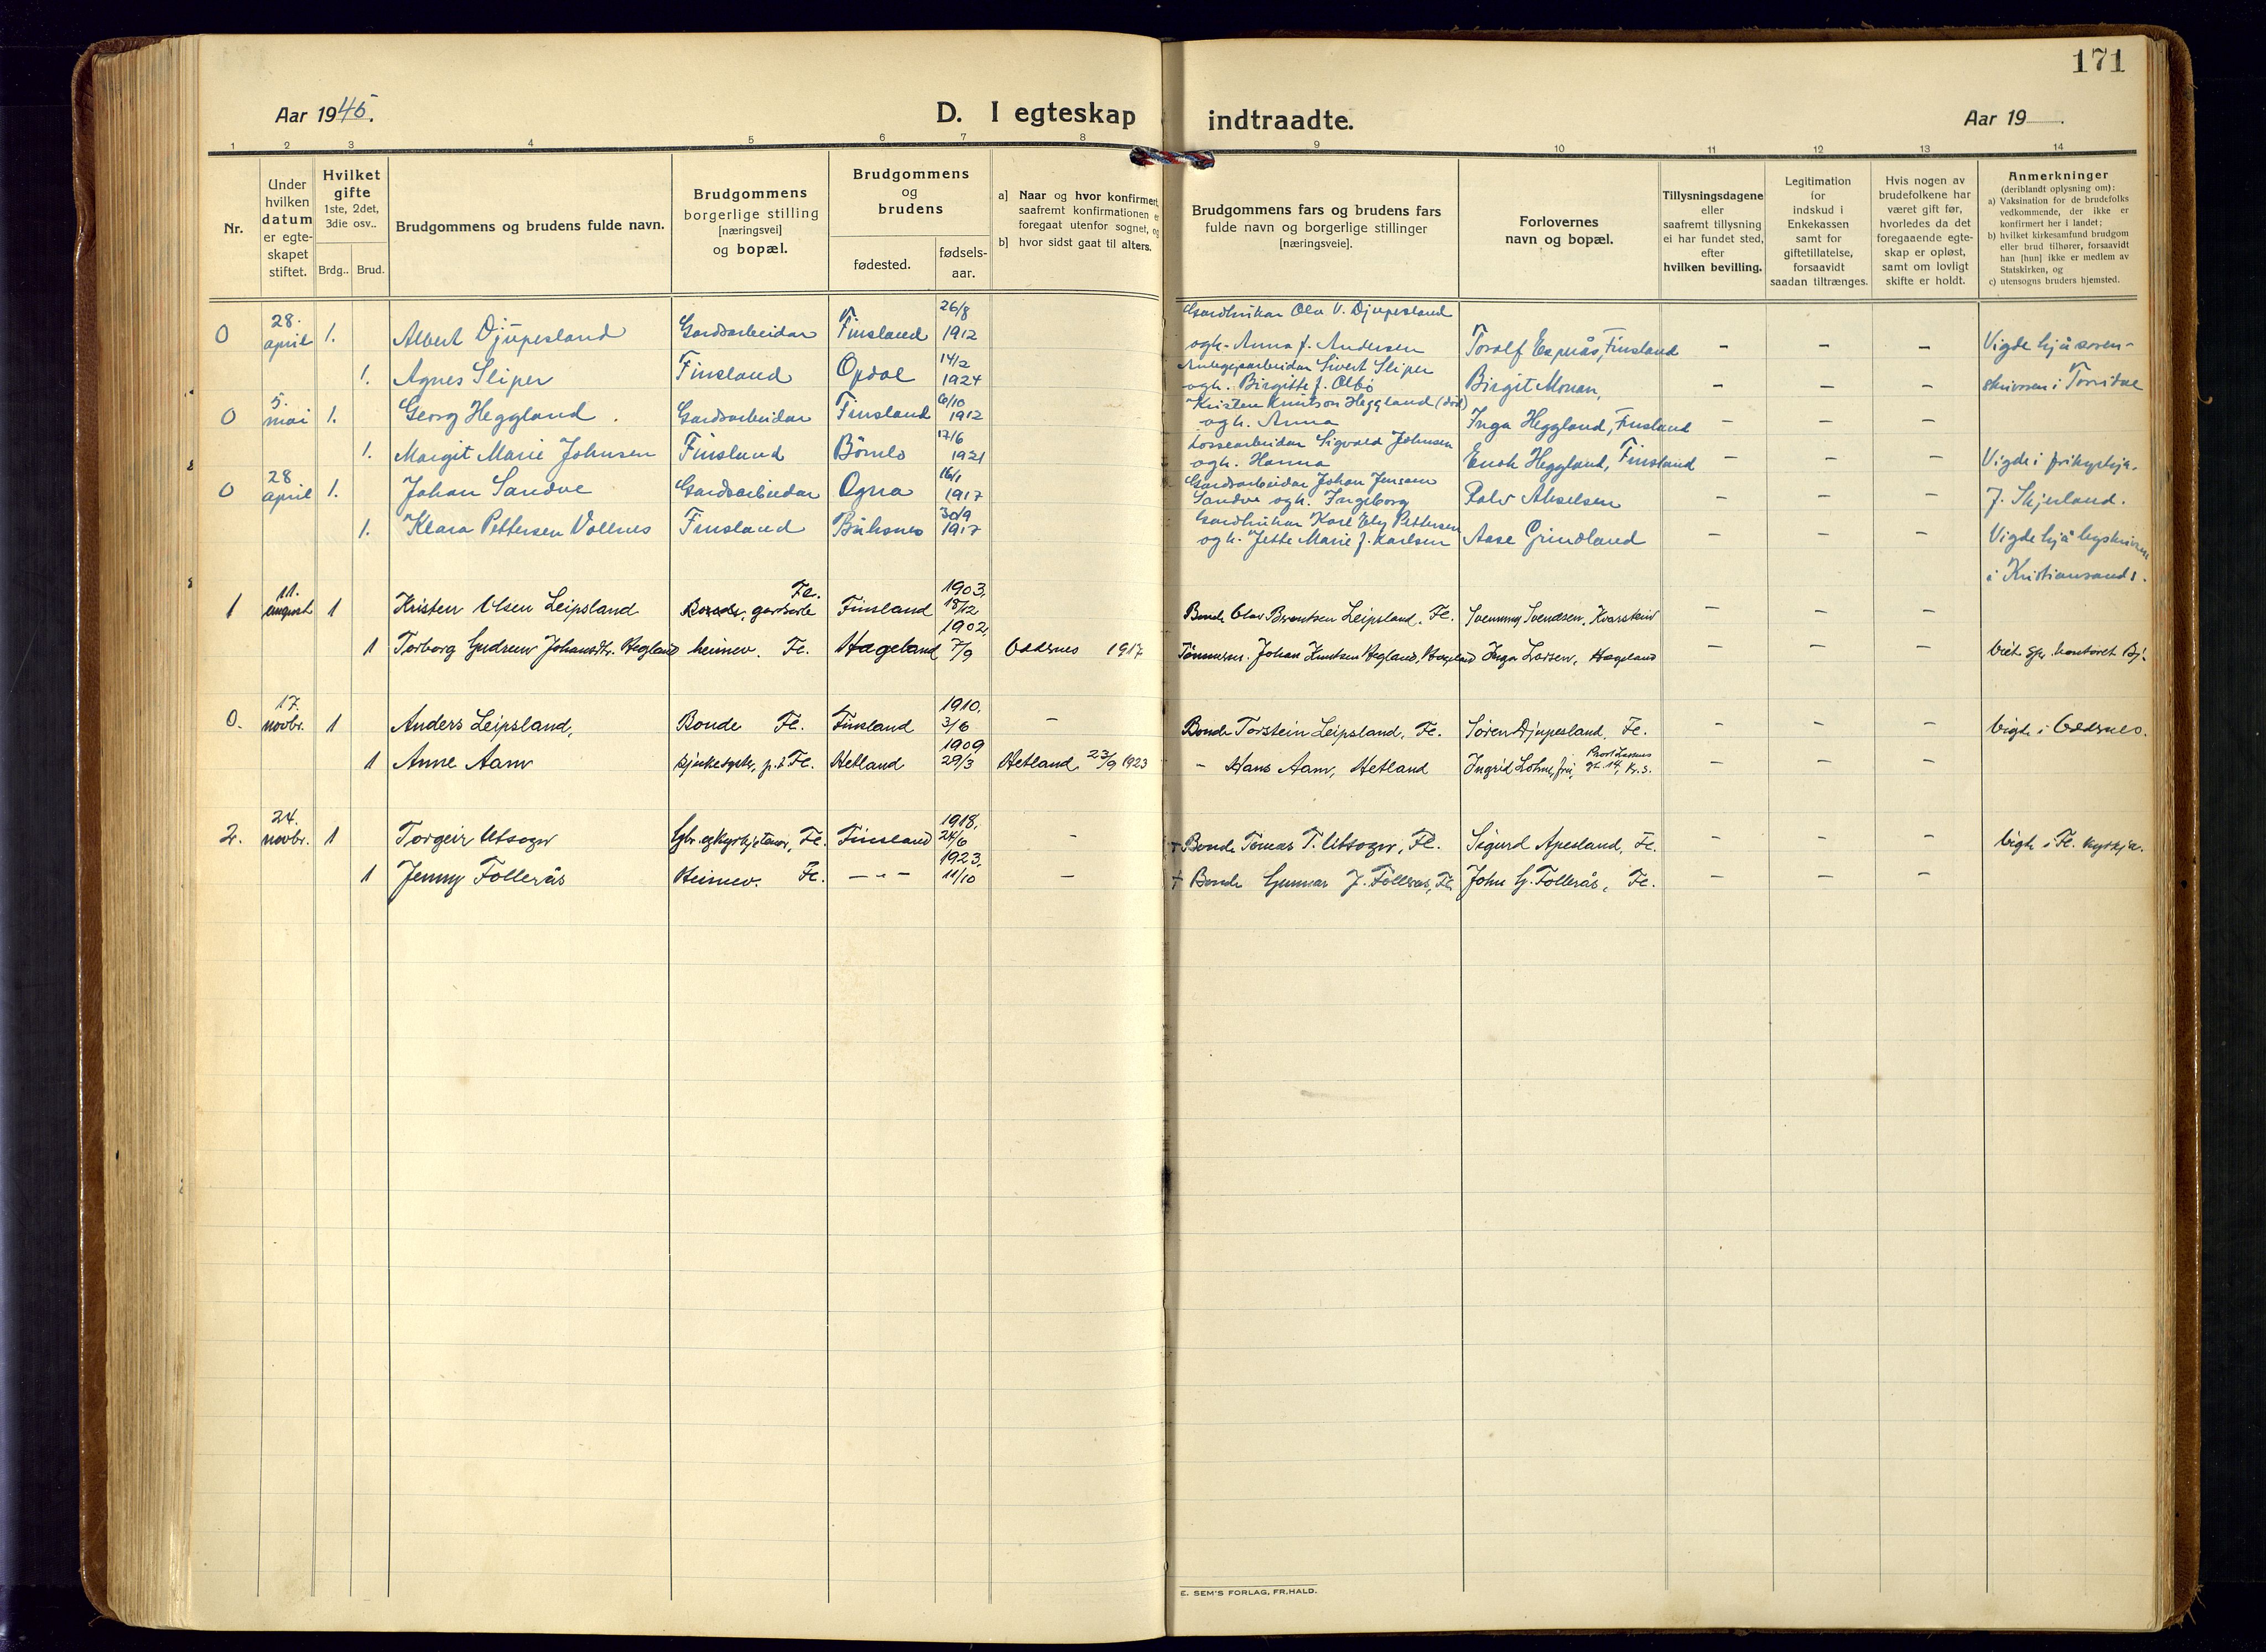 171
Aar 1945.
D. I egteskap indtraadte.
Aar 19 .
1 2 3 4 5 6 7 8 9 10 11 12 13 14
Nr.
Under
hvilken
datum
er egte-
skapet
stiftet.
Hvilket
gifte
1ste, 2det,
3die osv..
Brdg.. Brud.
Brudgommens og brudens fulde navn.
Brudgommens
borgerlige stilling
[næringsvei]
og bopæl.
Brudgommens
og
brudens
fødested.
fødsels-
aar.
a] Naar og hvor konfirmert,
saafremt konfirmationen er
foregaat utenfor sognet, og
b] hvor sidst gaat til alters.
Brudgommens fars og brudens fars
fulde navn og borgerlige stillinger
[næringsveie].
Forlovernes
navn og bopæl.
Tillysningsdagene
eller
saafremt tillysning
ei har fundet sted,
efter
hvilken bevilling.
Legitimation
for
indskud i
Enkekassen
samt for
giftetillatelse,
forsaavidt
saadan tiltrænges.
Hvis nogen av
brudefolkene har
været gift før,
hvorledes da det
foregaaende egte-
skap er opløst,
samt om lovligt
skifte er holdt.
Anmerkninger
(deriblandt oplysning om):
a) Vaksination for de brudefolks
vedkommende, der ikke er
konfirmert her i landet;
b) hvilket kirkesamfund brudgom
eller brud tilhører, forsaavidt
han [hun] ikke er medlem av
Statskirken, og
c) utensogns bruders hjemsted.
0 28. april 1. Albert Djupesland Gardsarbeidar Finsland 26/8 1912 Gardbrukar Olav V. Djupesland
ogh. Anna f. Andersen Torolf Esperås, Finsland - - - Vigde hjå soren-
1. Agnes Sliper Finsland Opdal 14/2 1924 Anleggsarbeidar Sivert Sliper
ogh. Birgitte f. Olbö Birgit Monan, - - - skrivaren i Torridal
0 5. mai 1. Georg Heggland. Gardsarbeidar Finsland 6/10 1912 Kristen Knutson Heggland (död)
ogh. Anna Inga Heggland, Finsland - - -
1. Margit Marie Johnsen Finsland Bömlo 17/6 1921 Lossearbeidar Sigvald Johnsen
ogh. Hanna Enok Heggland, Finsland - - - Vigde i frikyrkja.
0 28 april 1. Johan Sandve Gardsarbeidar Ogna 16/1 1917 Gardsarbeidar Johan Jenssen
Sandve ogh. Ingeborg Palv Akselsen - - - J. Skjerland.
1. Klara Pettersen Vollnes Finsland Buksnes 30/9 1917 Gardbrukar Karl Ely Pettersen
ogh. Jette Marie f. Karlsen Aase Grindland - - - Vigde hjå byskrivaren
i Kristiansand s.
1 11. august 1 Kristen Olsen Leipsland Bonde, Fe. Finsland 1903. 18/12 Bonde Olav Berentsen Leipsland. Fe. Svenning Svendsen, Kvarstein - - -
1 Torborg Gudrun Johansdtr. Hegland heimev. Fe. Hægeland 1902. 7/9 Oddernes 1917 Tömmerm. Johan Knutsen Hegland, Hægeland Inga Larsen, Hægeland - - -
0. 17. novbr. 1 Anders Leipsland, Bonde Fe. Finsland 1910. 3/6 - Bonde Torstein Leipsland, Fe. Sören Djupesland, Fe. - - - Vigde i Oddernes.
1 Anne Aam sjukesyster, p.t. Fe. Hetland 1909 29/3 Hetland 23/9 1923 - Hans Aam, Hetland Ingrid Lohne, - - -
2. 24. novbr. 1 Torgeir Utsogn Gbr. og kyrkjetenar, Fe. Finsland 1918. 24/6 - + Bonde Tomas T. Utsogn, Fe. Sigurd Apesland, Fe. - - - Vigde i Fe. kyrkja.
1 Jenny Follerås Heimev. Fe. - " - 1923. 11/10 - + Bonde Gunnar J. Follerås, Fe. John G. Follerås, Fe. - - -
E. SEM'S FORLAG, FR.HALD.